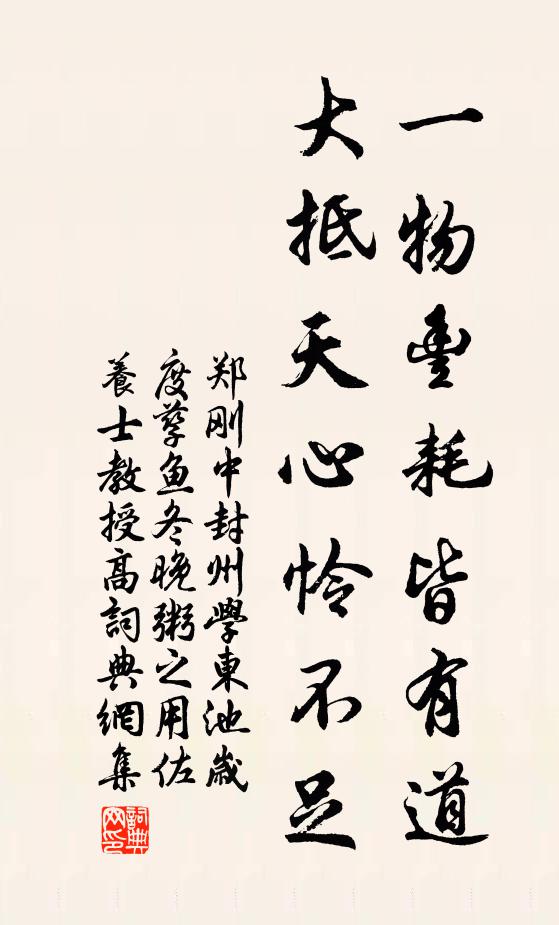 一物豊耗皆有道
大抵天心怜不足
郑刚中封州學東池歳
度孳鱼冬晚粥之用佐
養士教授高詞典網集
詞典网印